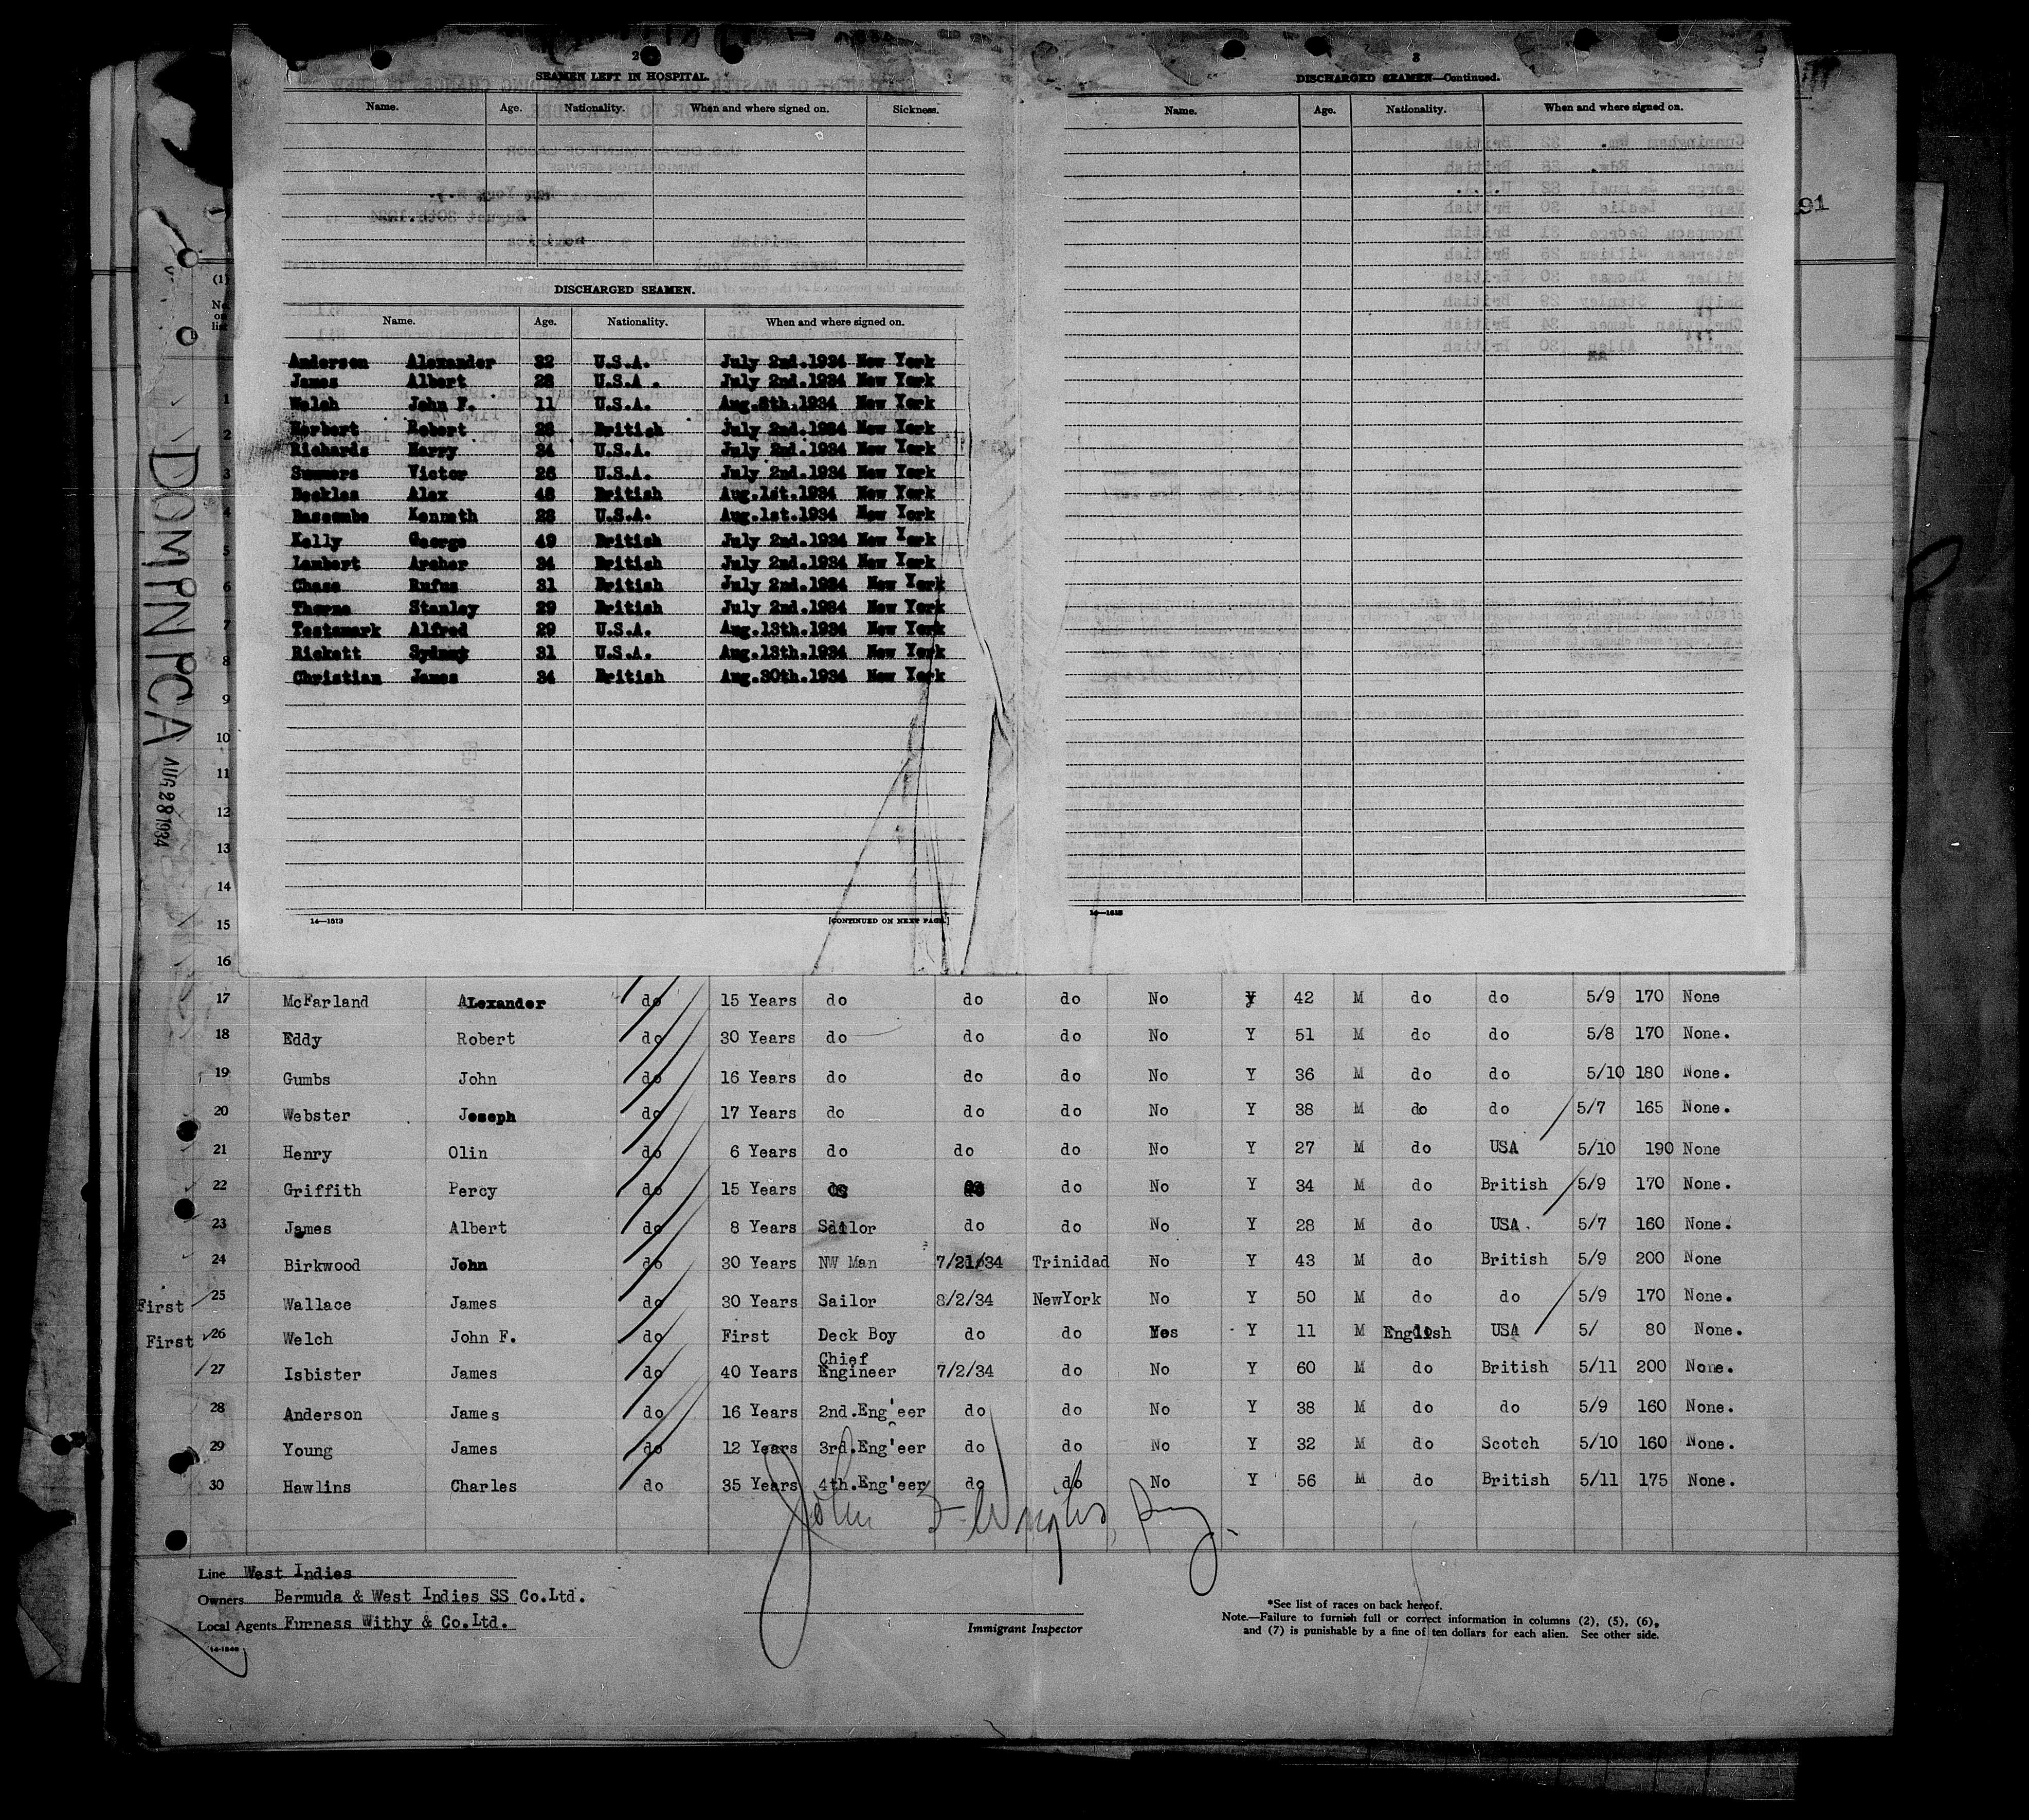 2
SEAMEN LEFT IN HOSPITAL.
Name. Age. Nationality. When and where signed on. Sickness.
DISCHARGED SEAMEN.
Name. Age. Nationality. When and where signed on.
Anderson Alexander 32 U.S.A. July 2nd.1934 New York
James Albert 28 U.S.A . July 2nd.1934 New York
Welch John F. 11 U.S.A. Aug.8th.1934 New York
Herbert Robert 28 British July 2nd.1934 New York
Richards Harry 34 U.S.A. July 2nd.1934 New York
Summers Victor 26 U.S.A. July 2nd.1934 New York
Beckles Alex 48 British Aug.1st.1934 New York
Bascombe Kenneth 28 U.S.A. Aug.1st.1934 New York
Kelly George 49 British July 2nd.1934 New York
Lambert Archer 34 British July 2nd.1934 New York
Chase Rufus 31 British July 2nd.1934 New York
Thorne Stanley 29 British July 2nd.1934 New York
Testamark Alfred 29 U.S.A. Aug.13th.1934 New York
Rickett Sydney 31 U.S.A. Aug.13th.1934 New York
Christian James 34 British Aug.30th.1934 New York
14—1513
[CONTINUED ON NEXT PAGE.]
3
DISCHARGED SEAMEN—Continued.
Name. Age. Nationality. When and where signed on.
14—1513
91
(1)
No.
on
list
1
2
3
4
5
6
7
8
9
10
11
12
13
14
15
16
DOMINICA AUG 28 1934
17 McFarland ALexander do 15 Years do do do No Y 42 M do do 5/9 170 None
18 Eddy Robert do 30 Years do do do No Y 51 M do do 5/8 170 None.
19 Gumbs John do 16 Years do do do No Y 36 M do do 5/10 180 None.
20 Webster Joseph do 17 Years do do do No Y 38 M do do 5/7 165 None.
21 Henry Olin do 6 Years do do do No Y 27 M do USA 5/10 190 None
22 Griffith Percy do 15 Years do do do No Y 34 M do British 5/9 170 None.
23 James Albert do 8 Years Sailor do do No Y 28 M do USA. 5/7 160 None.
24 Birkwood John do 30 Years NW Man 7/21/34 Trinidad No Y 43 M do British 5/9 200 None
First 25 Wallace James do 30 Years Sailor 8/2/34 NewYork No Y 50 M do do 5/9 170 None.
First 26 Welch John F. do First Deck Boy do do Yes Y 11 M English USA 5/ 80 None.
27 Isbister James do 40 Years Chief Engineer 7/2/34 do No Y 60 M do British 5/11 200 None.
28 Anderson James do 16 Years 2nd.Eng'eer do do No Y 38 M do do 5/9 160 None.
29 Young James do 12 Years 3rd.Eng'eer do do No Y 32 M do Scotch 5/10 160 None.
30 Hawlins Charles do 35 Years 4th.Eng'eer do do No Y 56 M do British 5/11 175 None.
Line West Indies
Owners Bermuda & West Indies SS Co.Ltd.
Local Agents Furness Withy & Co.Ltd.
Immigrant Inspector
*See list of races on back hereof.
Note.—Failure to furnish full or correct information in columns (2), (5), (6),
and (7) is punishable by a fine of ten dollars for each alien. See other side.